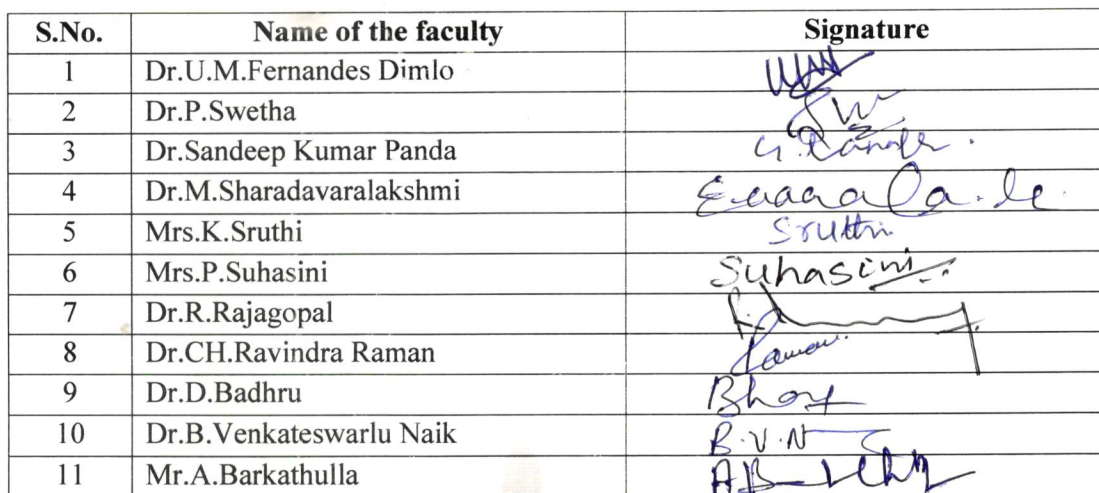 S.No. Name of the faculty Signature
1 Dr.U.M.Fernandes Dimlo
2 Dr.P.Swetha
3 Dr.Sandeep Kumar Panda
4 Dr.M.Sharadavaralakshmi
5 Mrs.K.Sruthi Sruthi
6 Mrs.P.Suhasini Suhasini
7 Dr.R.Rajagopal
8 Dr.CH.Ravindra Raman
9 Dr.D.Badhru
10 Dr.B.Venkateswarlu Naik B.V.N
11 Mr.A.Barkathulla